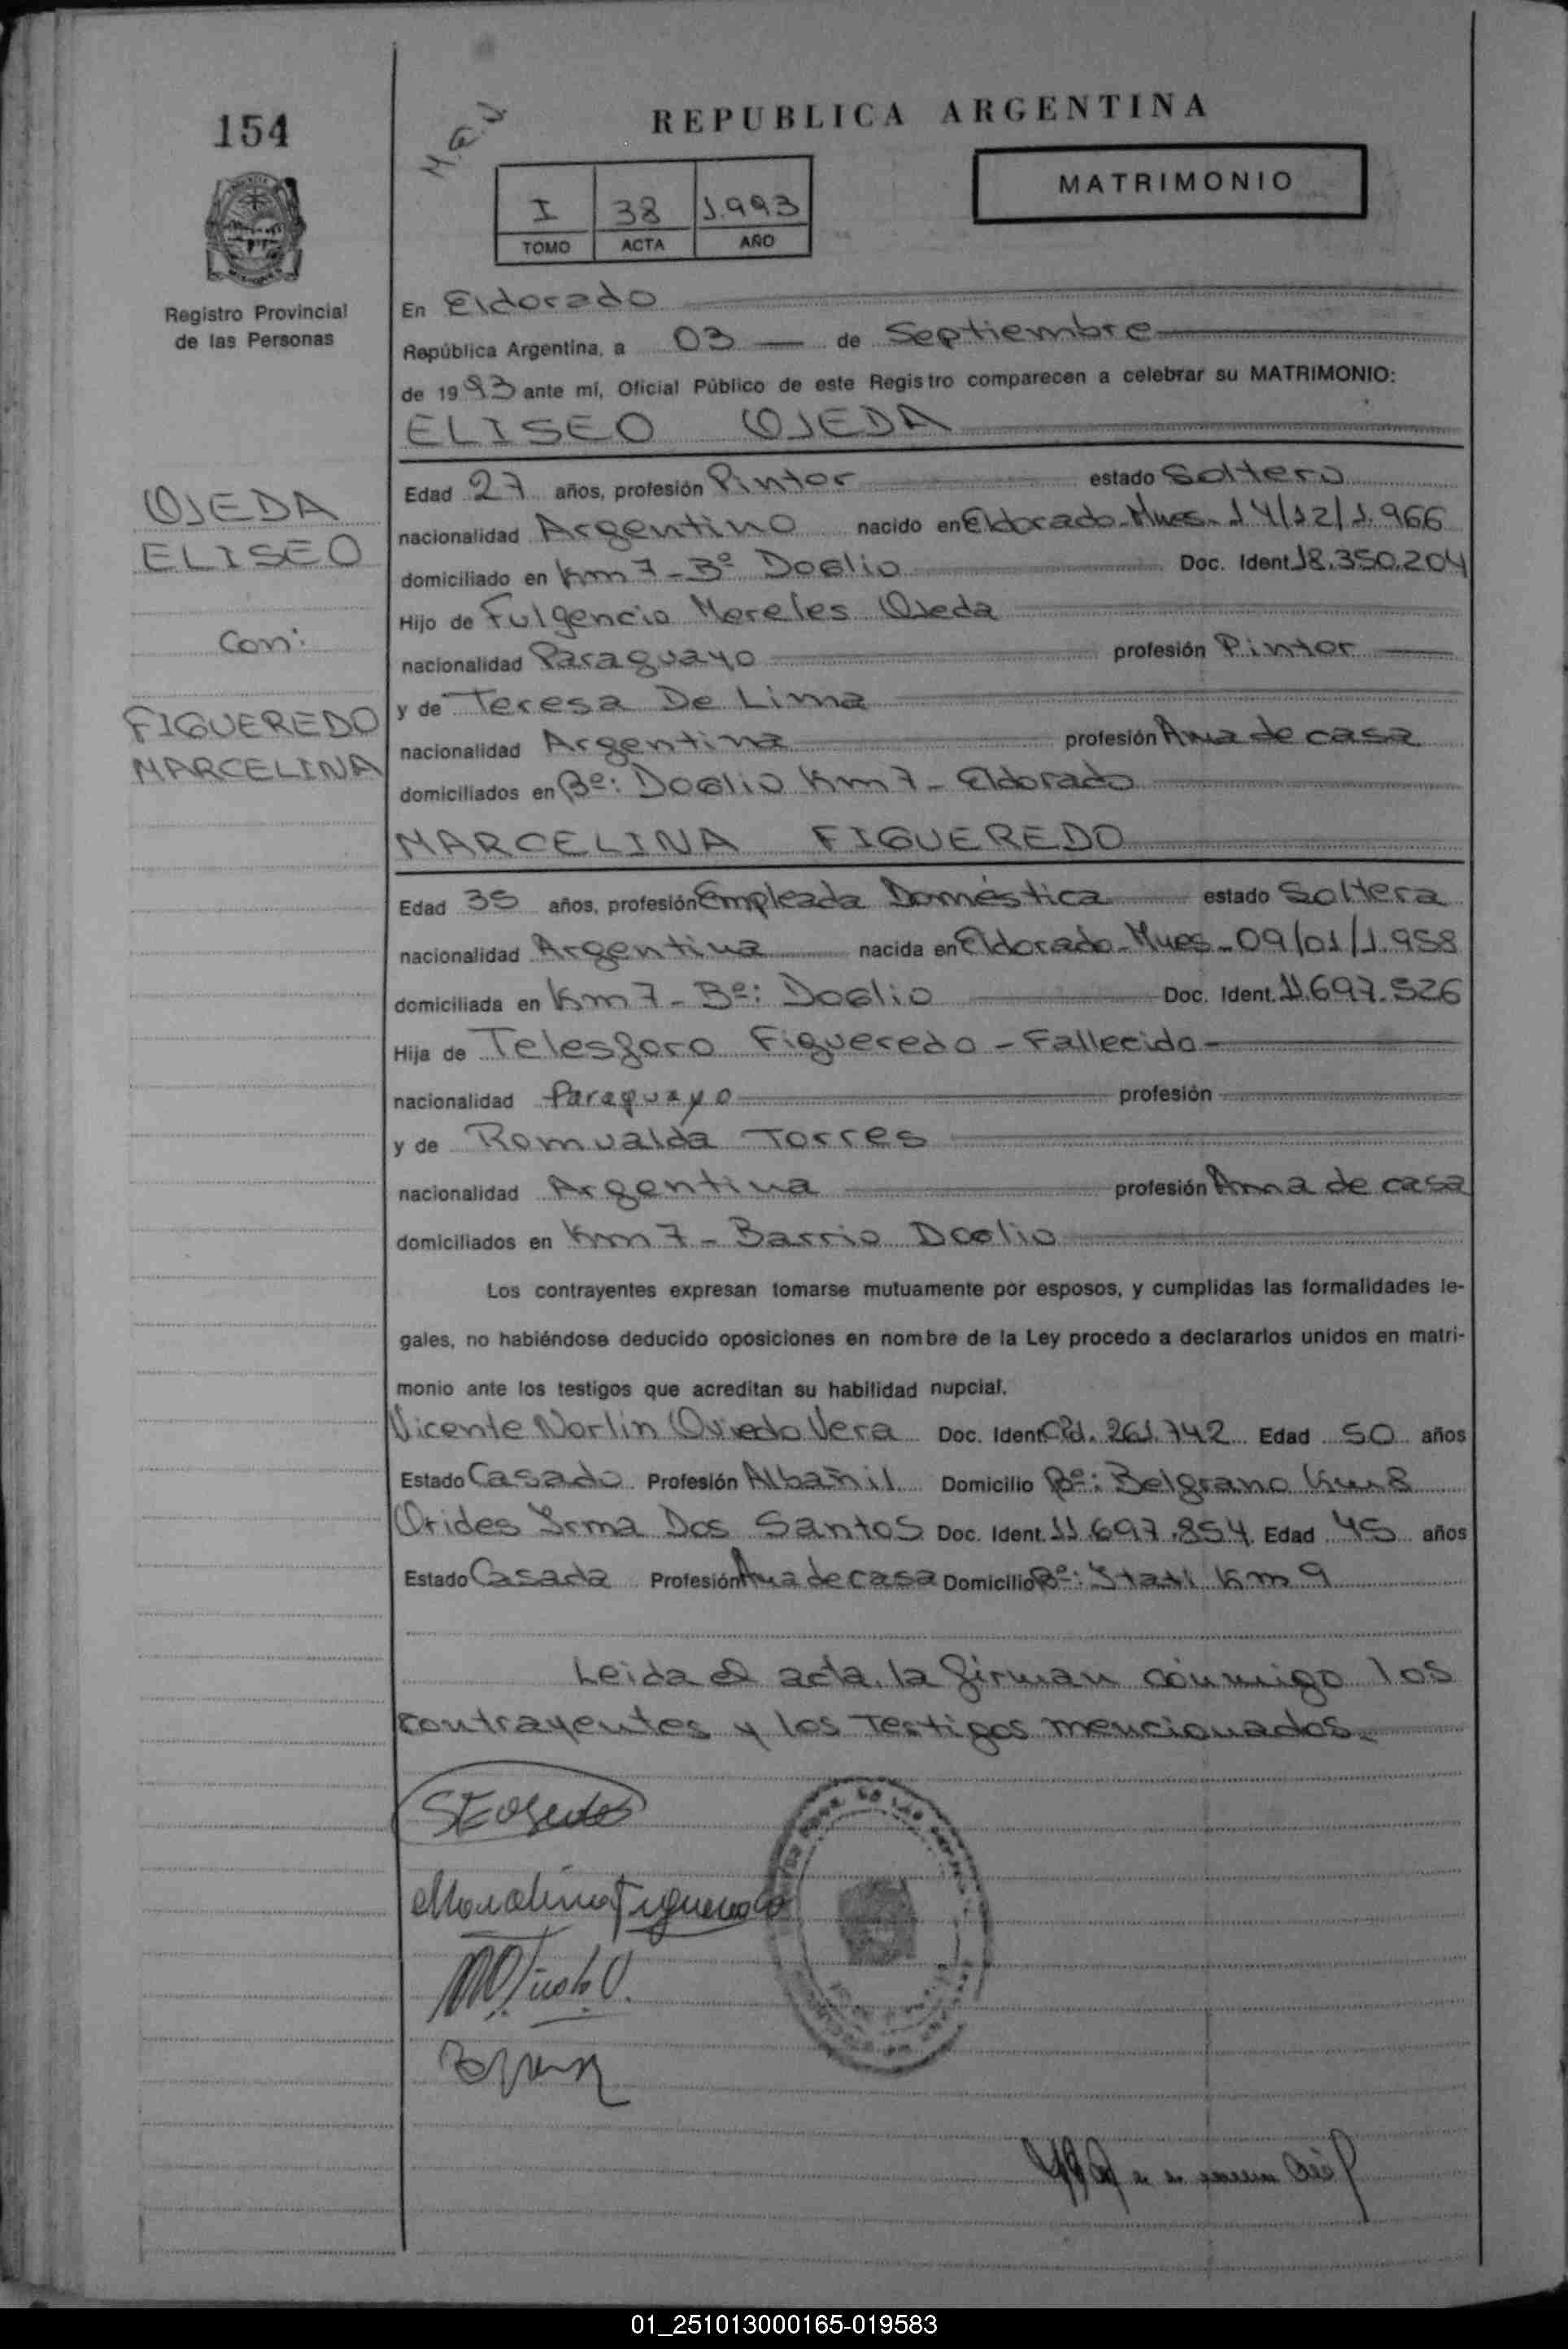 154
REPUBLICA ARGENTINA
MATRIMONIO
I 38 1.993
TOMO ACTA AÑO
Registro Provincial
de las Personas
En Eldorado
República Argentina, a 03 — de Septiembre
de 1993 ante mí, Oficial Público de este Registro comparecen a celebrar su MATRIMONIO:
ELISEO OJEDA
OJEDA
ELISEO
Con:
FIGUEREDO
MARCELINA
Edad 27 años, profesión Pintor estado Soltero
nacionalidad Argentino nacido en Eldorado - Mnes - 14/12/1.966
domiciliado en Km 7 - Bº Doglio Doc. Ident. 18.350.204
Hijo de Fulgencio Mereles Ojeda
nacionalidad Paraguayo profesión Pintor
y de Teresa De Lima
nacionalidad Argentina profesión Ama de casa
domiciliados en Bº: Doglio Km 7 - Eldorado
MARCELINA FIGUEREDO
Edad 35 años, profesión Empleada Doméstica estado Soltera
nacionalidad Argentina nacida en Eldorado - Mnes - 09/01/1.958
domiciliada en Km 7 - Bº: Doglio Doc. Ident. 11.697.526
Hija de Telesforo Figueredo - Fallecido -
nacionalidad Paraguayo profesión
y de Romualda Torres
nacionalidad Argentina profesión Ama de casa
domiciliados en Km 7 - Barrio Doglio
Los contrayentes expresan tomarse mutuamente por esposos, y cumplidas las formalidades le-
gales, no habiéndose deducido oposiciones en nombre de la Ley procedo a declararlos unidos en matri-
monio ante los testigos que acreditan su habilidad nupcial.
Vicente Norlin Oviedo Vera Doc. Ident. 261.742 Edad 50 años
Estado Casado Profesión Albañil Domicilio Bº: Belgrano Km 8
Orides Irma Dos Santos Doc. Ident. 11.697.854 Edad 45 años
Estado Casada Profesión Ama de casa Domicilio Bº: Km 9
Leida el acta, la firman conmigo los
contrayentes y los Testigos mencionados.
Marcelina Figueredo
01_251013000165-019583